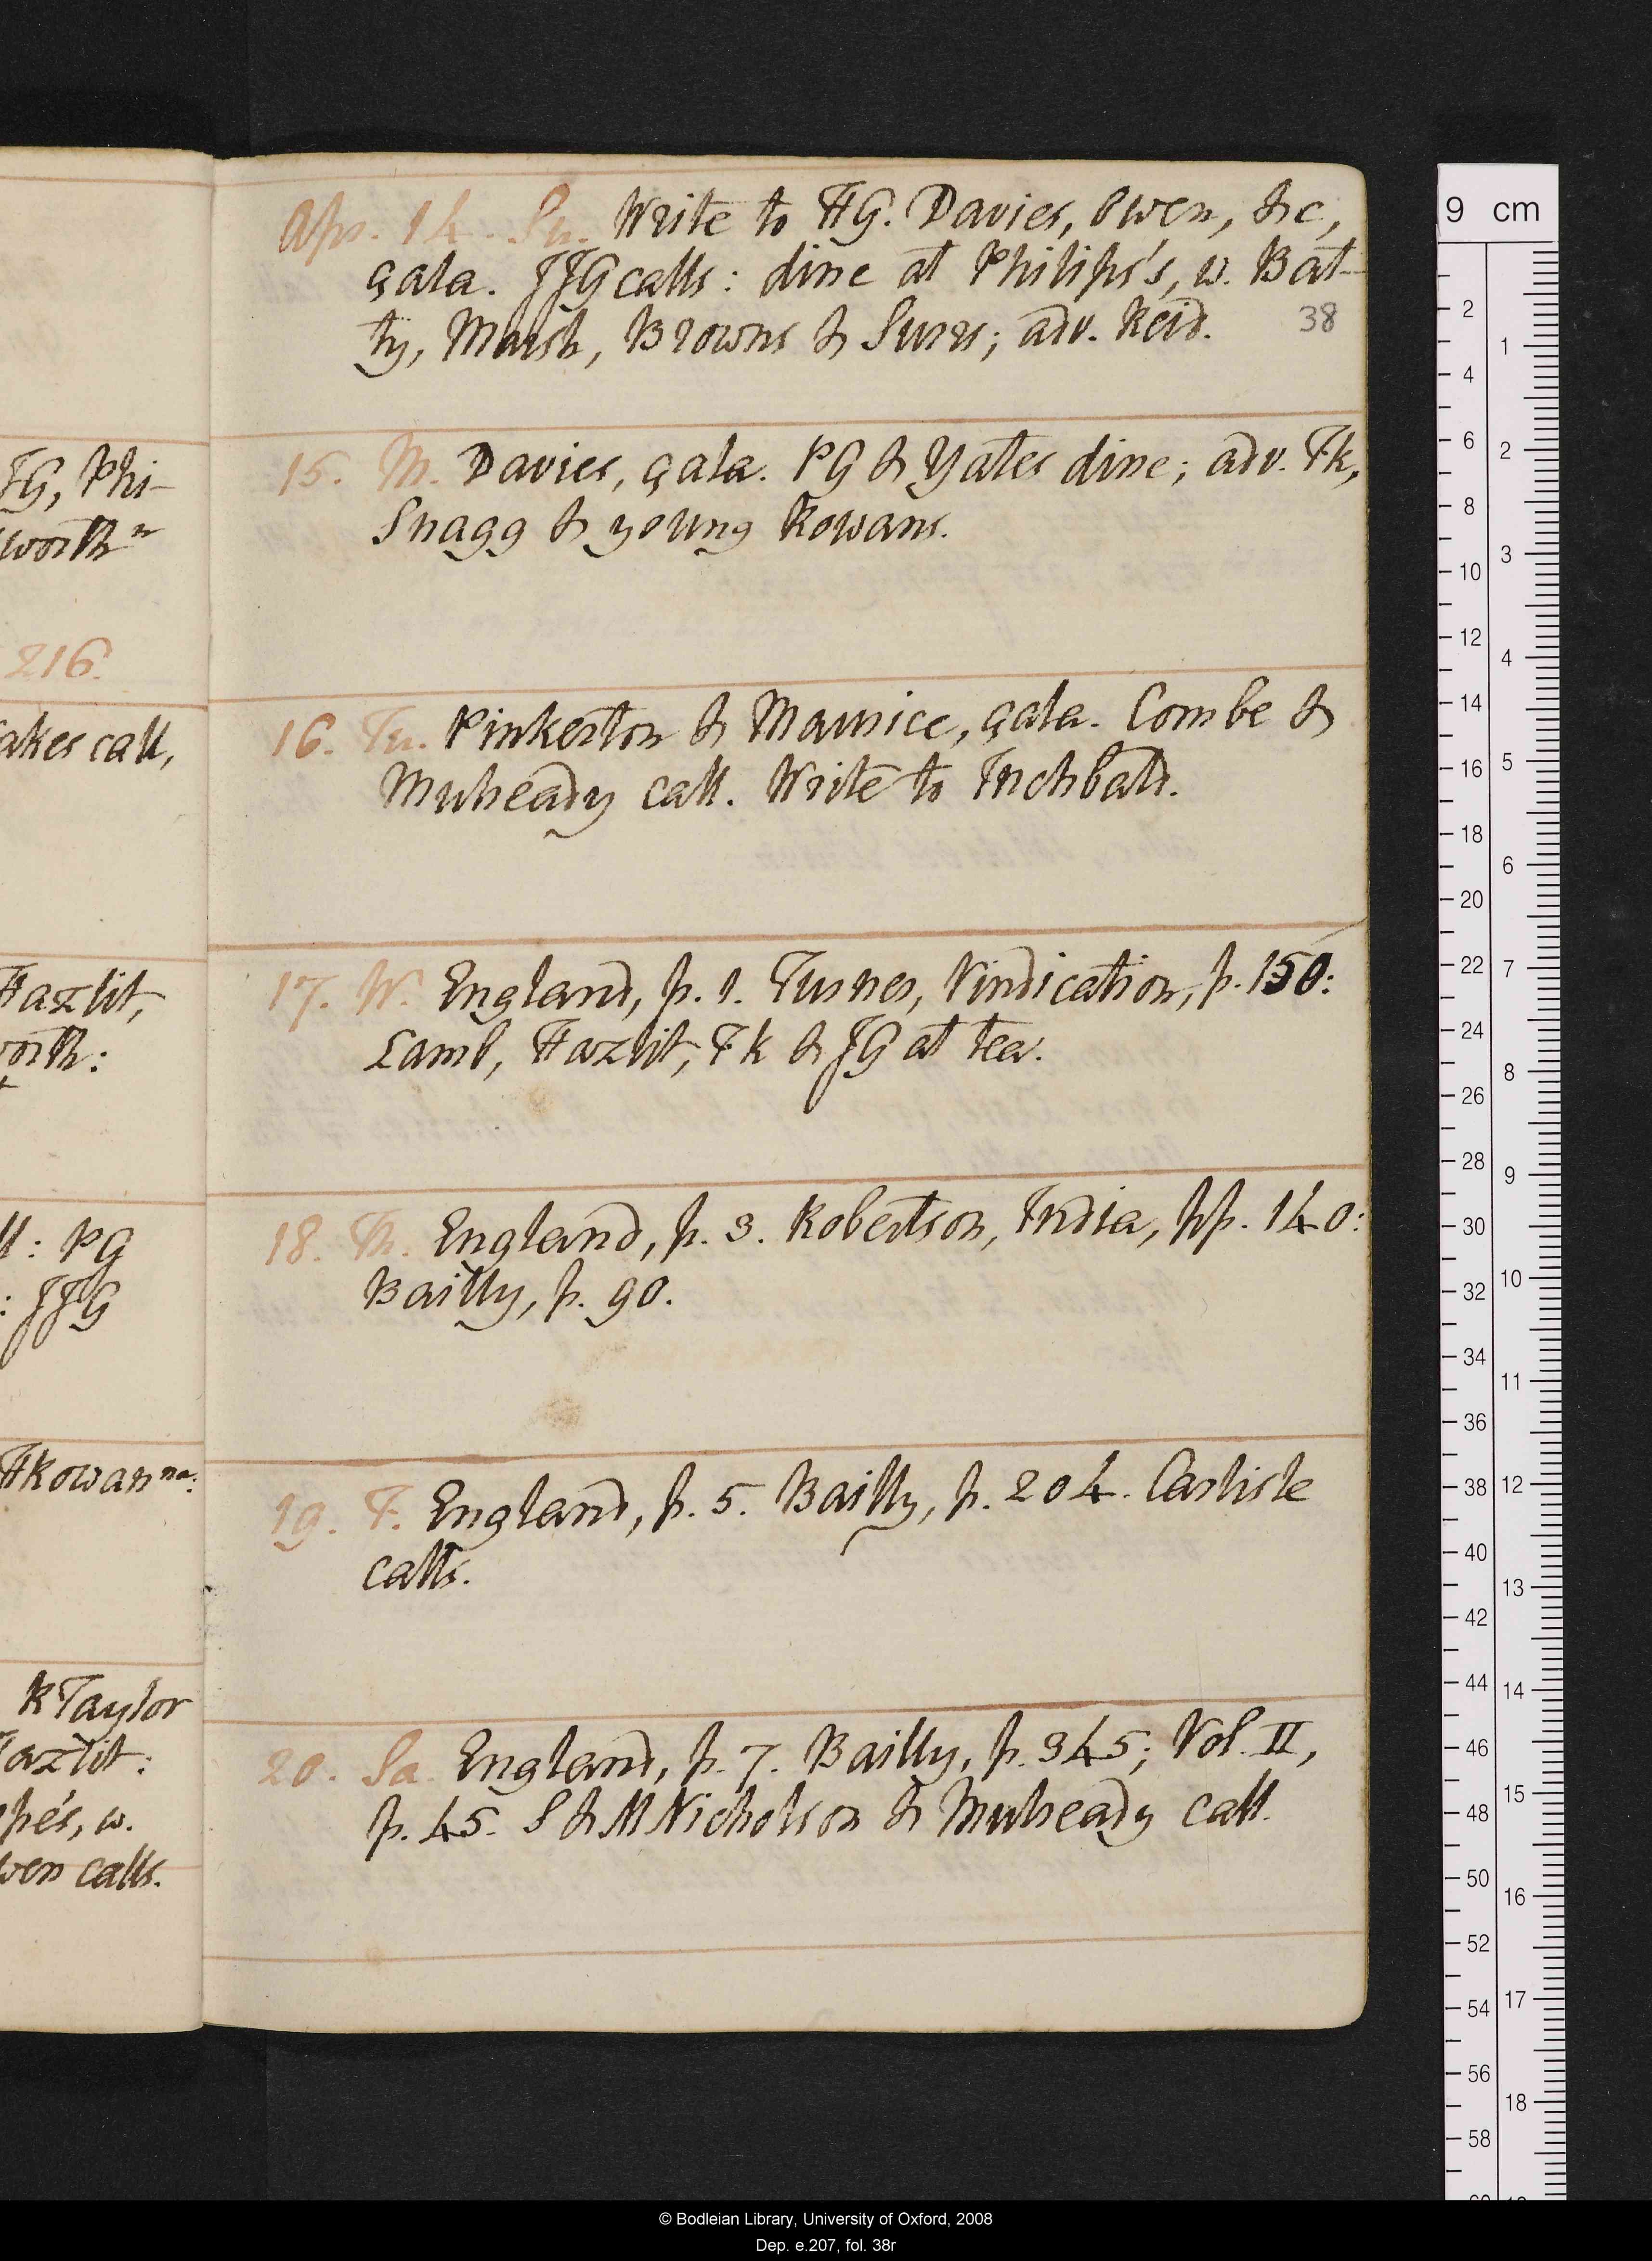 Apr. 14. Su. Write to HG. Davies, Owen, &c,
çala. JJG calls: dine at Philips's, w. Bat-
ty, Marsh, Browns & Surrs; adv. Reid.
38
15. M. Davies, çala. PG & Yates dine; adv. Fk,
Snagg & young Rowans.
16. Tu. Pinkerton & Maurice, çala. Combe &
Mulready call. Write to Inchbald.
17. W. England, p. 1. Turner, Vindication, p. 150:
Lamb, Hazlit, Fk & JG at tea.
18. Th. England, p. 3. Robertson, India, pp. 140:
Bailly, p. 90.
19. F. England, p. 5. Bailly, p. 204. Carlisle
calls.
20. Sa. England, p. 7. Bailly, p. 345; Vol. II,
p. 45. S & M Nicholson & Mulready call.
JG, Phi-
worth
216.
akes call,
Hazlit,
orth:
ll: PG
: JJG
HRowan
R Taylor
azlit:
pe's, w.
wen calls.
9 cm
2 4 6 8 10 12 14 16 18 20 22 24 26 28 30 32 34 36 38 40 42 44 46 48 50 52 54 56 58
1 2 3 4 5 6 7 8 9 10 11 12 13 14 15 16 17 18
© Bodleian Library, University of Oxford, 2008
Dep. e.207, fol. 38r